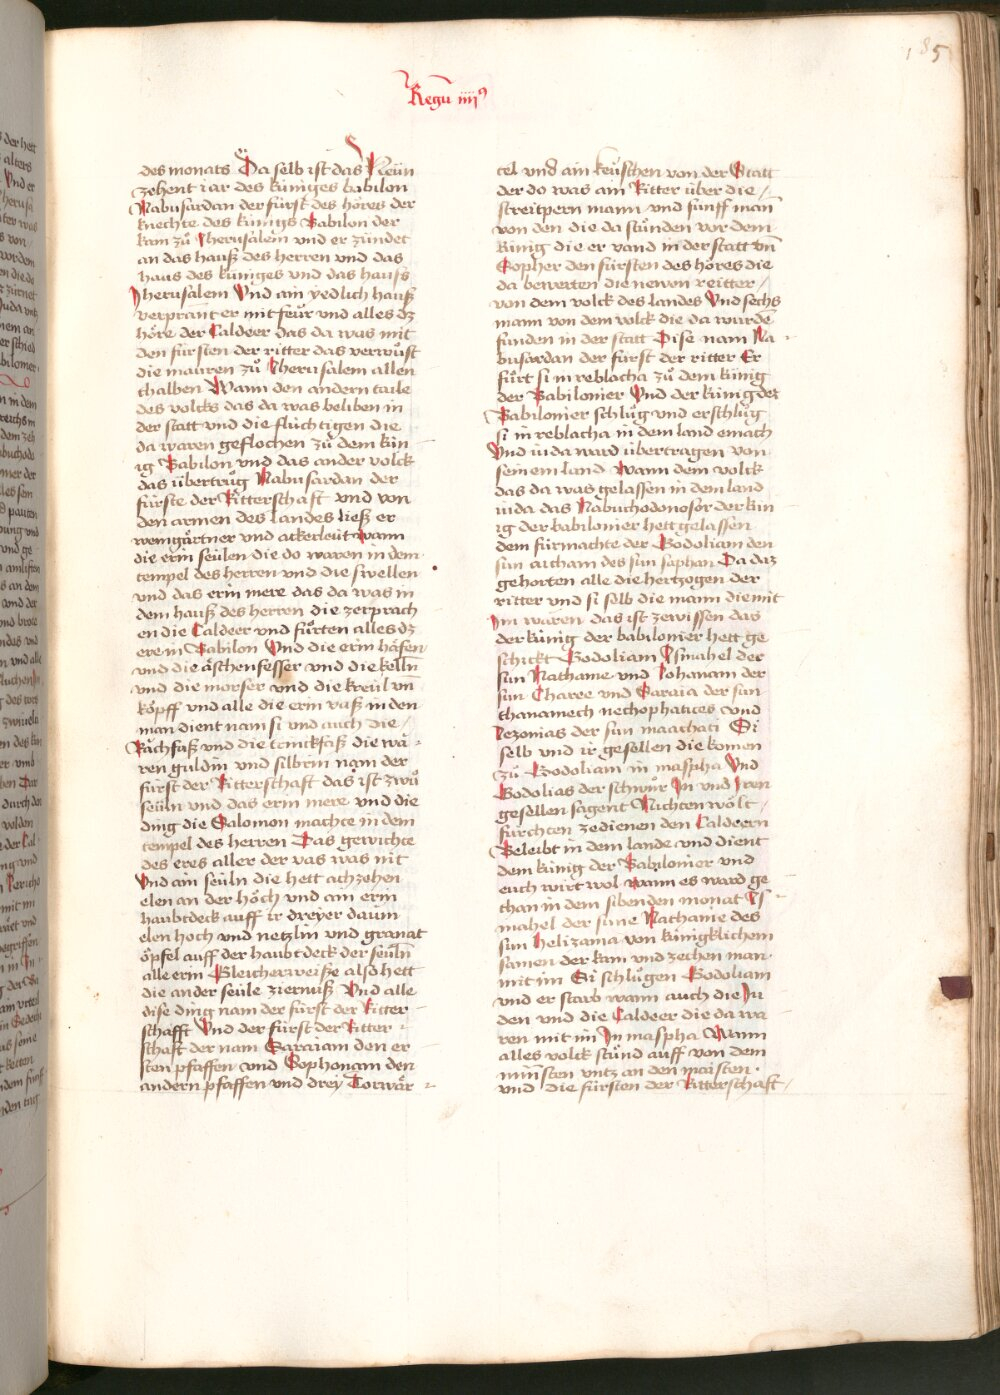 185
Regu͂ iiiiꝰ
des monats Da selb ist das Neün
zehent iar des küniges babilon
Nabusardan der fürst des höres der
knechte des künigs Babilon der
kam zů Jherusalem vnd er zündet
an das hauß des herren vnd das
haus des küniges vnd das hauß
Jherusalem Vnd ain yedlich hauß
verprannt er mit feür vnd alles dz
höre der Caldeer das da was mit
den fürsten der ritter das verwůst
die mauren zů Jherusalem allen
thalben Wann den andern taile
des volcks das da was beliben in
der statt vnd die flüchtigen die
da waren geflochen zů dem kün
ig Babilon vnd das ander volck
das übertrůg Nabusardan der
fürste der Ritterschaft vnd von
den armen des landes ließ er
weingärtner vnd ackerleüt wann
die erin seülen die do waren in dem
tempel des herren vnd die swellen
vnd das erin mere das da was in
dem hauß des herren die zerprach
en die Caldeer vnd fůrten alles dz
ere in Babilon Vnd die erin häfen
vnd die äschenfesser vnd die kelln
vnd die morser vnd die kreül vn͂
köpff vnd alle die erin vaß in den
man dient nam si vnd auch die
Rachfaß vnd die trinckfaß die wa
ren guldin vnd silbrin nam der
fürst der Ritterschaft das ist zwů
seüln vnd das erin mere vnd die
ding die Salomon machte in dem
tempel des herren Das gewichte
des eres aller der vas was nit
Vnd ain seüln die hett achzehen
elen an der höch vnd ain erin
haubtdeck auff ir dreyer daum
elen hoch vnd netzlin vnd granat
öpfel auff der haubtdeck der seüln͂
alle erin Gleicherweiße also hett
die ander seüle ziernuß Vnd alle
dise ding nam der fürst der Ritter
schafft Vnd der fürst der Ritter
schaft der nam Saraiam den er
sten pfaffen vnd Sophonam den
andern pfaffen vnd drey Torwär
tel vnd ain keüschen von der Statt
der do was ain Ritter über die
streitpern mann vnd funff man͂
von den die da stůnden vor dem
künig die er vand in der statt vn͂
Sopher den fürsten des höres die
da bewerten die newen reitter
von dem volck des landes Vnd sechs
mann von dem volck die da wurde͂
funden in der statt Dise nam Na
busardan der fürst der ritter Er
fůrt si in reblacha zů dem künig
der Babilonier Vnd der künig der
Babilonier schlůg vnd erschlůg
si in reblacha in dem land emach
Vnd iuda ward übertragen von
seinem land Wann dem volck
das da was gelassen in dem land
iuda das Nabuchodonosor der kün
ig der babilonier hett gelassen
dem fürmachte der Godoliam den
sun aicham des sun saphan Da daz
gehorten alle die hertzogen der
ritter vnd si selb die mann die mit
Im waren das ist zewissen das
der künig der babilonier hett ge
schickt Godoliam Ismahel der
sun Nathanie vnd Johanam der
sun Charee vnd Saraia der sun
thanamech nechophatices vnd
Jezonias der sun maachati Si
selb vnd ir gesellen die komen
zů Godoliam in maspha Vnd
Godolias der schwůr In vnd Iren
gesellen sagent Nichten wölt
fürchten zedienen den Caldeern
Beleibt in dem lande vnd dient
dem künig der Babilonier vnd
euch wirt wol wann es ward ge
than in dem sibenden monat Is
mahel der sune Nathanie des
sun helizama von künigklichem
samen der kam vnd zechen man
mit im Si schlůgen Godoliam
vnd er starb wann auch die Ju
den vnd die Caldeer die da wa
ren mit im In maspha Wann
alles volck stůnd auff von dem
minsten vntz an den maisten
vnd die fürsten der Ritterschaft